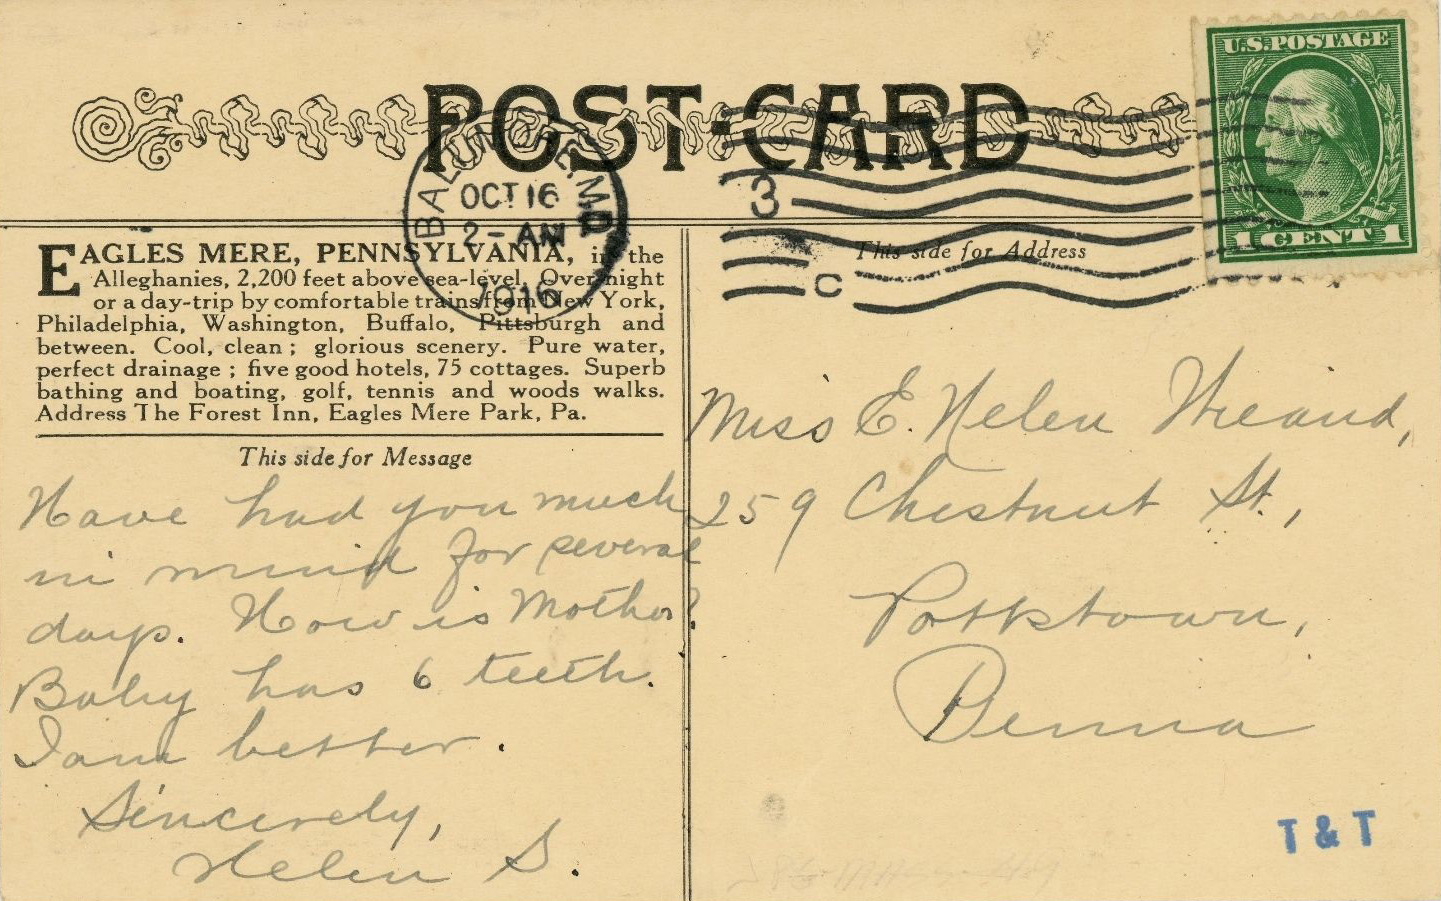 POST·CARD
U.S. POSTAGE
1 CENT 1
BALTIMORE, MD.
OCT 16
2 - AM
1916
3
C
EAGLES MERE, PENNSYLVANIA, in the
Alleghanies, 2,200 feet above sea-level. Over night
or a day-trip by comfortable trains from New York,
Philadelphia, Washington, Buffalo, Pittsburgh and
between. Cool, clean ; glorious scenery. Pure water,
perfect drainage ; five good hotels, 75 cottages. Superb
bathing and boating, golf, tennis and woods walks.
Address The Forest Inn, Eagles Mere Park, Pa.
This side for Message
Have had you much
in mind for several
days. How is Mother?
Baby has 6 teeth.
I am better.
Sincerely,
Helen S.
This side for Address
Miss E. Helen Wieand,
259 Chestnut St.,
Pottstown,
Penna
T & T